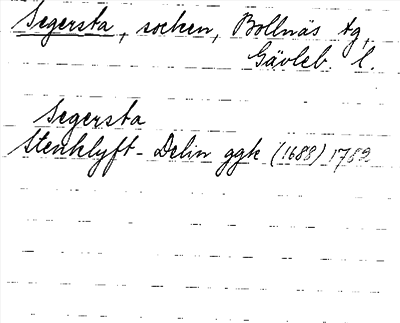 Segersta, socken, Bollnäs tg,
Gävleb. l.
Segersta
Stenklyft - Delin ggk (1688) 1789